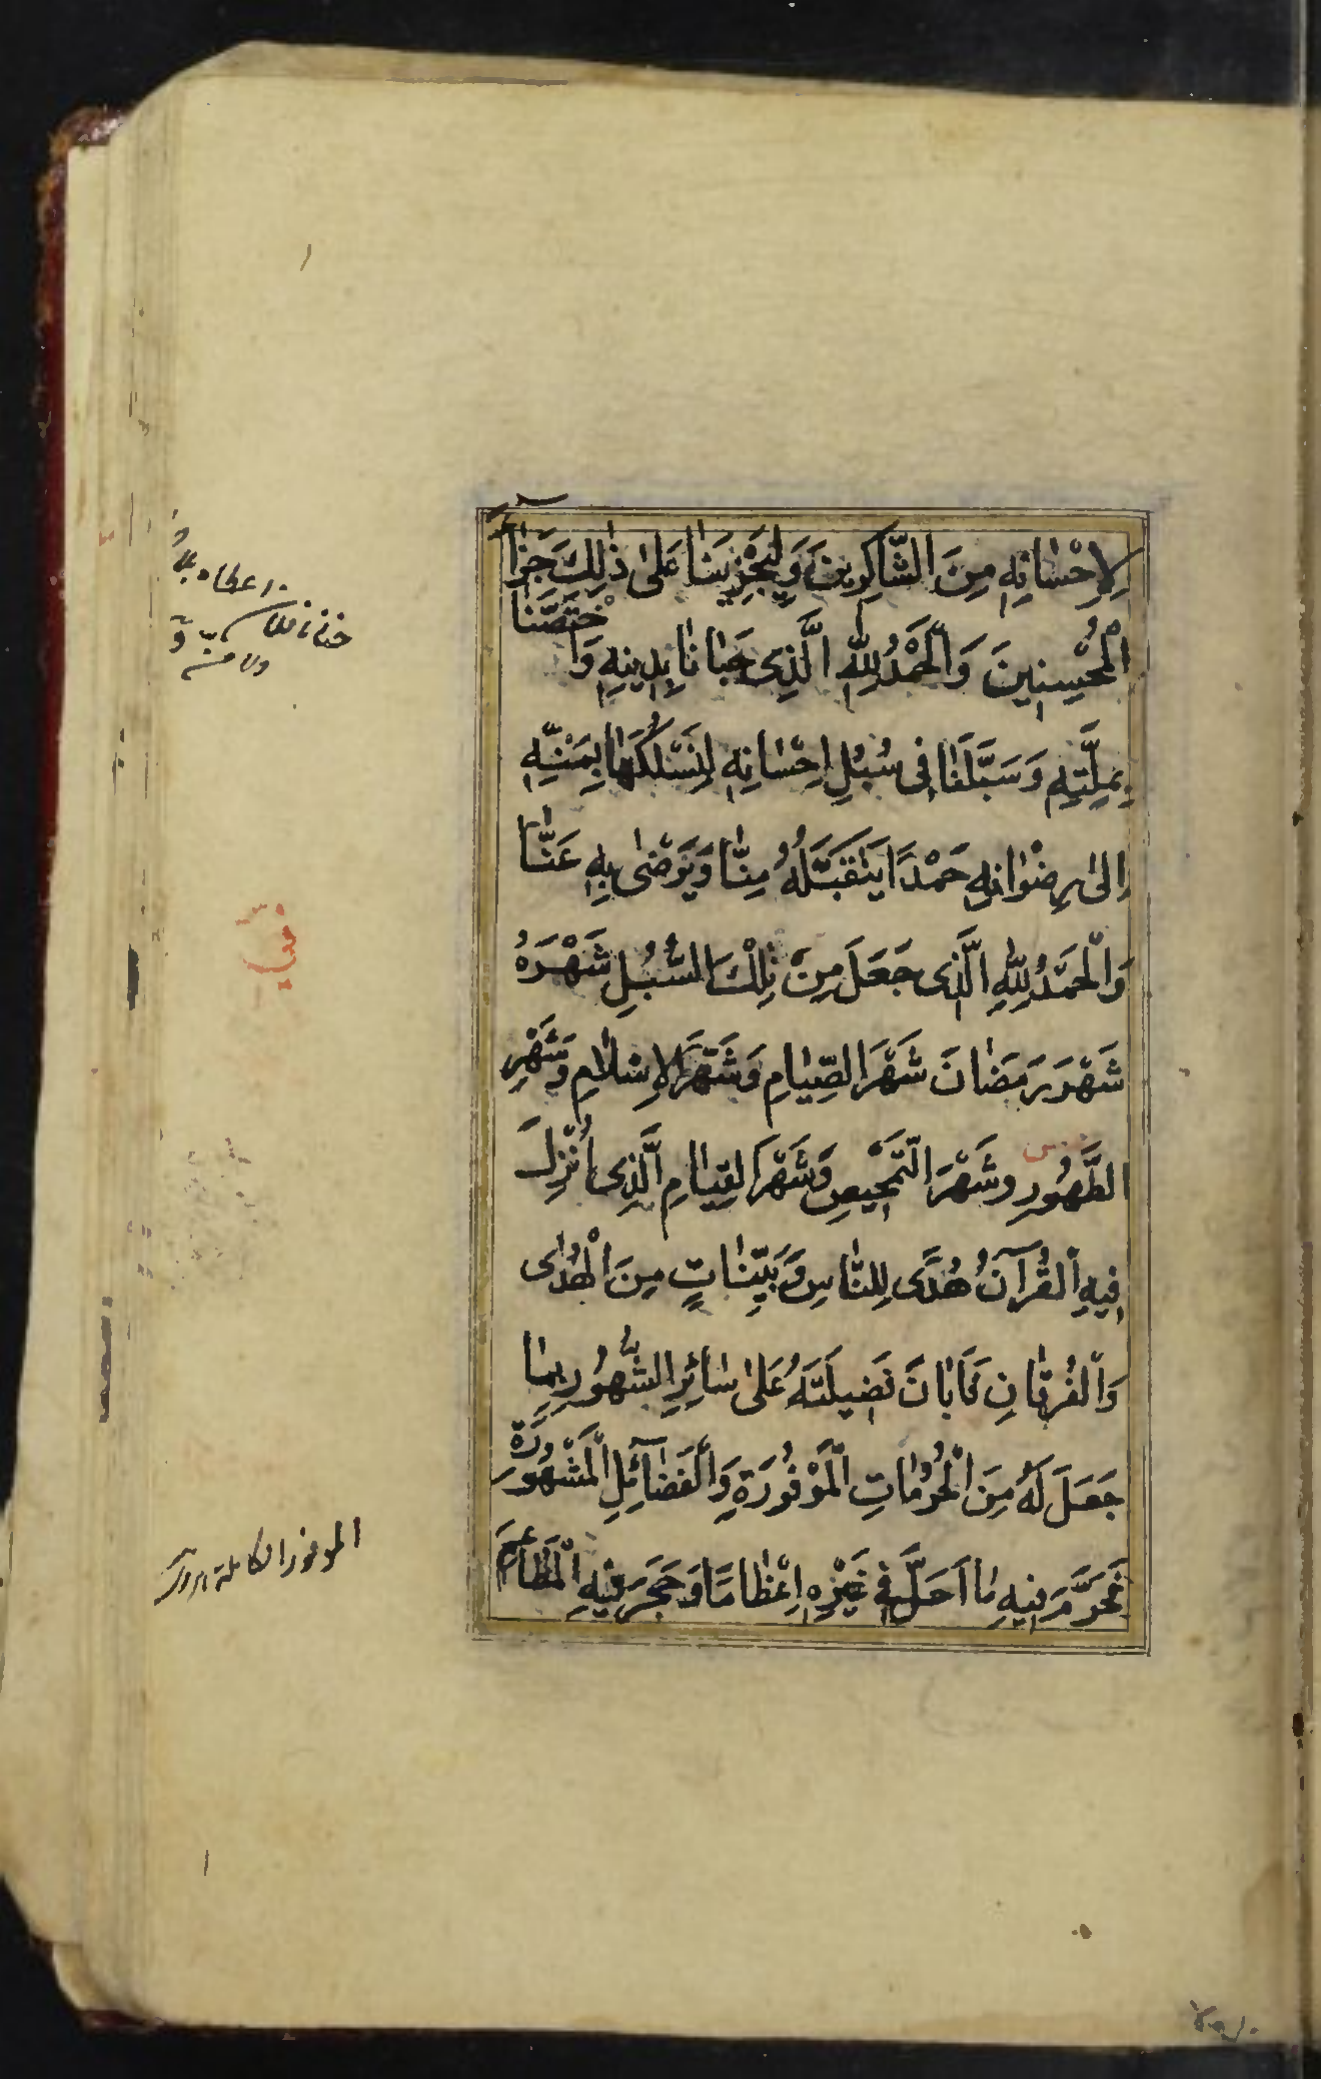 لِاِحْسٰانِهِ مِنَ الشّٰاكِرينَ وَلِيَجْزِيَنٰا عَلىٰ ذٰلِكَ جَزٰآءَ
الْمُحْسِنِينَ وَالْحَمْدُ لِلّٰهِ الَّذِى حَبٰانٰا بِدِينِهِ وَاخْتَصَّنٰا
بِمِلَّتِهِ وَسَبَّلَنٰا فِى سُبُلِ اِحْسٰانِهِ لِنَسْلُكَهٰا بِمَنِّهِ
اِلىٰ رِضْوٰانِهِ حَمْدًا يَتَقَبَّلُهُ مِنّٰا وَيَرْضىٰ بِهِ عَنّٰا
وَالْحَمْدُ لِلّٰهِ الَّذِى جَعَلَ مِنْ تِلْكَ السُّبُلِ شَهْرَهُ
شَهْرَ رَمَضٰانَ شَهْرَ الصِّيٰامِ وَشَهْرَ الْاِسْلٰامِ وَشَهْرَ
الطَّهُورِ وَشَهْرَ التَّمْحِيصِ وَشَهْرَ الْقِيٰامِ الَّذِى اُنْزِلَ
فِيهِ الْقُرْآنُ هُدًى لِلنّٰاسِ وَبَيِّنٰاتٍ مِنَ الْهُدٰى
وَالْفُرْقٰانِ فَاَبٰانَ فَضِيلَتَهُ عَلىٰ سٰائِرِ الشُّهُورِ بِمٰا
جَعَلَ لَهُ مِنَ الْحُرُمٰاتِ الْمَوْفُورَةِ وَالْفَضٰآئِلِ الْمَشْهُورَةِ
فَحَرَّمَ فِيهِ مٰا اَحَلَّ فِى غَيْرِهِ اِعْظٰامًا وَحَجَرَ فِيهِ الْمَطٰاعِمَ